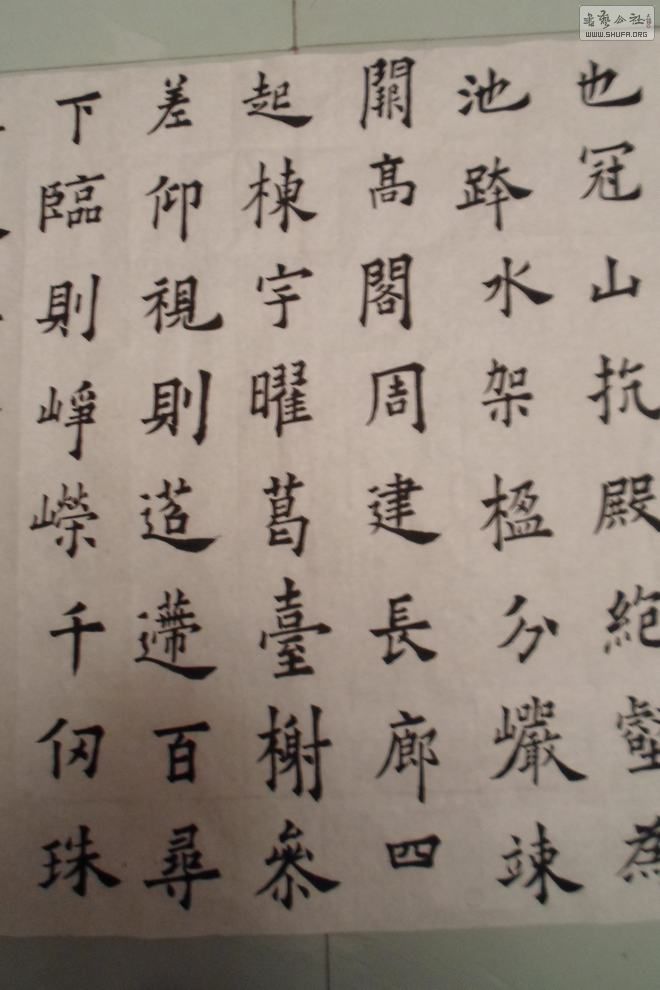 也冠山抗殿絶壑為
池跨水架楹分巖竦
闕高閣周建長廊四
起棟宇曜葛臺榭參
差仰視則迢遰百尋
下臨則崢嶸千仞珠
書藝公社
WWW.SHUFA.ORG